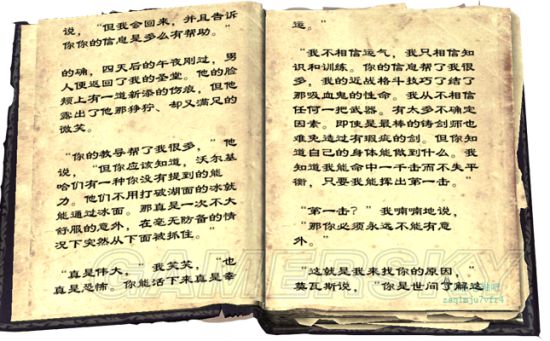 说，“但我会回来，并且告诉
你你的信息是多么有帮助。”
的确，四天后的午夜刚过，男
人便返回了我的圣堂。他的脸
颊上有一道新添的伤痕，但他
露出了他那狰狞、却又满足的
微笑。
“你的教导帮了我很多，”他
说，“但你应该知道，沃尔基
哈们有一种你没有提到的能
力。他们不用打破湖面的冰就
能通过冰面。那真是一次不大
舒服的意外，在毫无防备的情
况下突然从下面被抓住。”
“真是伟大，”我笑笑，“也
真是恐怖。你能活下来真是幸
运。”
“我不相信运气，我只相信知
识和训练。你的信息帮了我很
多，我的近战格斗技巧了结了
那吸血鬼的性命。我从不相信
任何一把武器。有太多不确定
因素。即使是最棒的铸剑师也
难免造过有瑕疵的剑。但你知
道自己的身体能做到什么。我
知道我能命中一千击而不失平
衡，只要我能挥出第一击。”
“第一击？”我喃喃地说，
“那你必须永远不能有意
外。”
“这就是我来找你的原因，”
莫瓦斯说，“你是世间了解这
GAMERSKY
zaq1mju7vfr4